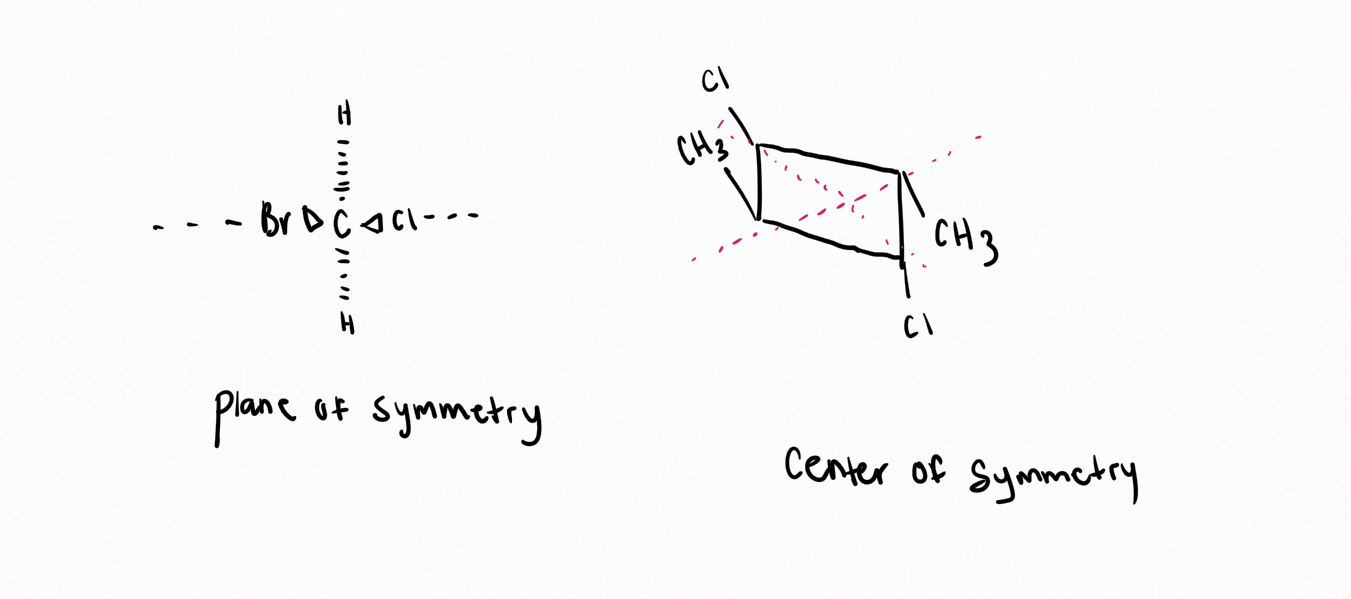 Cl
H
CH3
Br C Cl
CH3
H
Cl
Plane of symmetry
Center of symmetry